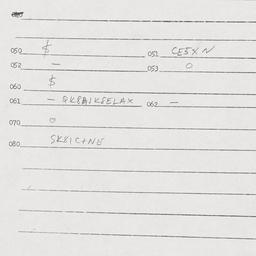 050 $ 051 CE5XN
052 — 053 0
060 $
061 — 8K8A1K8ELAX 062 —
070 0
080 5K81C+NE